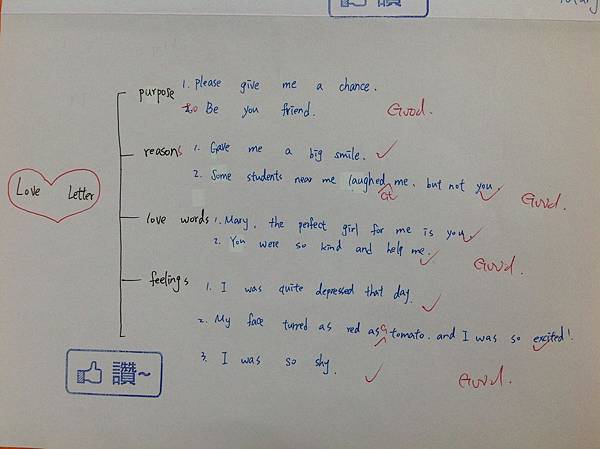 讚
purpose 1. Please give me a chance.
2. To Be you friend. Good.
reasons 1. Gave me a big smile.
2. Some students near me laughed at me, but not you. Good.
Love Letter
love words 1. Mary, the perfect girl for me is you.
2. You were so kind and help me. Good.
feelings
1. I was quite depressed that day.
2. My face turred as red as a tomato. and I was so excited!
3. I was so shy. Good.
讚~